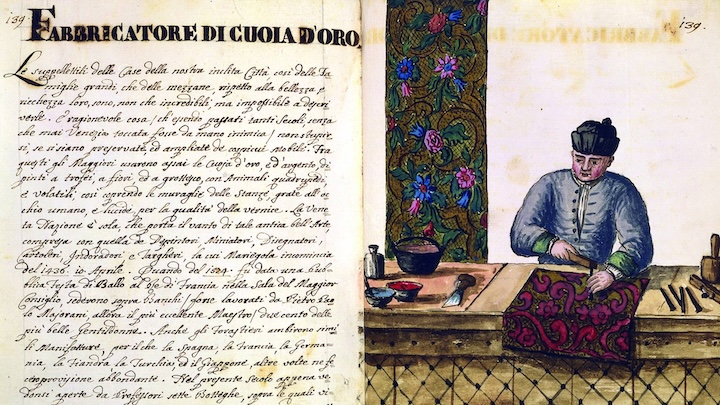 139.
FABBRICATORE DI CUOIA D'ORO
Le suppellettili delle Case della nostra inclita Città così delle Fa
miglie grandi che delle mezzane, rispetto alla bellezza, e
ricchezza loro, sono, non che incredibili, ma impossibile a descri
verle. È ragionevole cosa, ch'essendo passati tanti Secoli, senza
che mai Venezia toccata fosse da mano inimica, non stupir
si, se si siano preservate, ed ampliate de cospicui Nobili. Fra
questi gli Maggiori usarono assai le Cuoja d'oro, e d'argento, di
pinti a trofei, a fiori, ed a grottesco, con Animali quadrupedi,
e volatili, così coprendo le muraglie delle Stanze grate all'oc
chio umano, e lucide, per la qualità della vernice. La Vene
ta Nazione è sola, che porta il vanto di tale antica bell'Arte,
compresa con quella de Dipintori, Miniatori, Disegnatori,
Cartoleri, Indoradori, e Targheri, la cui Mariegola incomincia
del 1436. 10. Aprile. Quando del 1574. fu data una
Festa di Ballo al Rè di Francia nella Sala del Maggior
Consiglio, sedevono sopra Banchi
allora il più eccellente Maestro, duecento delle
più belle Gentildonne. Anche gli Forastieri ambirono simi
li Manifatture, per il che la Spagna, la Francia, la Germa-
nia, la Fiandra, la Turchia, ed il Giappone, altre volte ne fe
cero provisione abbondante. Nel presente Secolo appena ve
donsi aperte da Professori sette Botteghe, sopra le quali vi
139.